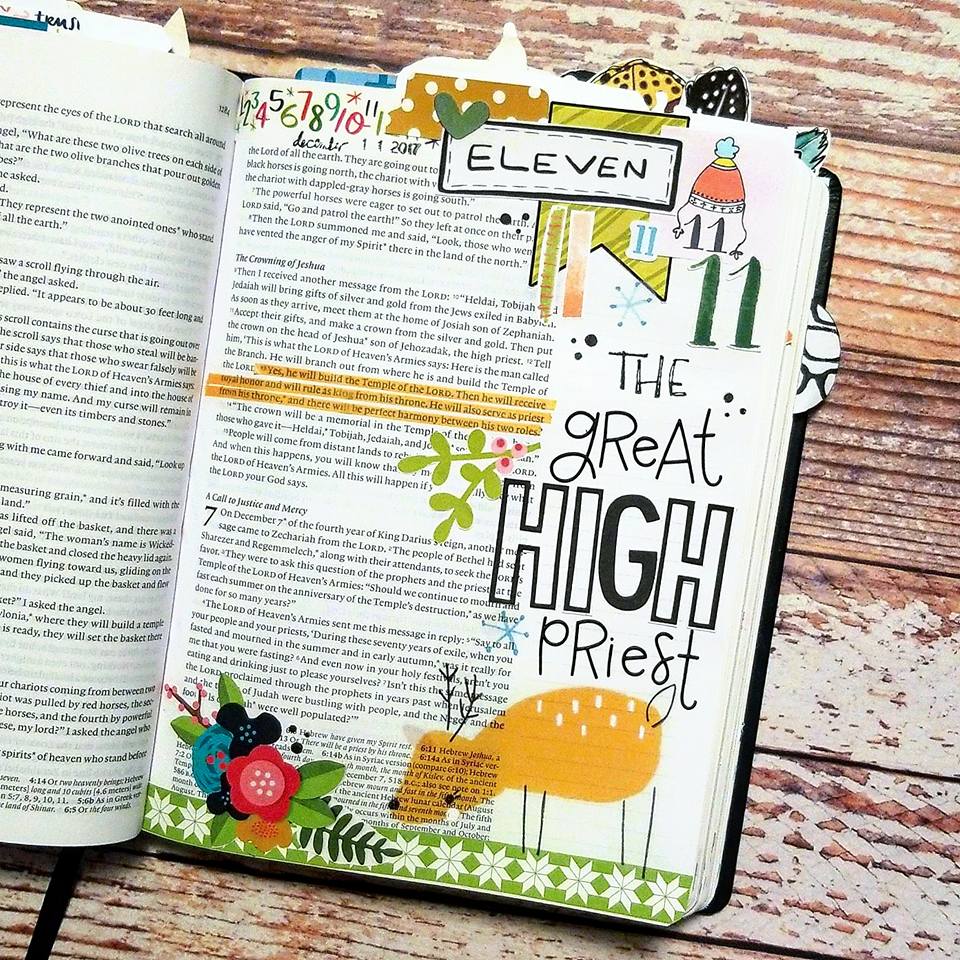 trust
1284
represent the eyes of the LORD that search all around
gel, "What are these two olive trees on each side of
at are the two olive branches that pour out golden
oes?"
he asked.
d.
They represent the two anointed ones* who stand
all the earth."
saw a scroll flying through the air.
the angel asked.
eplied. "It appears to be about 30 feet long and
s scroll contains the curse that is going out over
he scroll says that those who steal will be ban-
r side says that those who swear falsely will be
this is what the LORD of Heaven's Armies says:
the house of every thief and into the house of
sing my name. And my curse will remain in
troy it—even its timbers and stones."
g with me came forward and said, "Look up
measuring grain,* and it's filled with the
land."
as lifted off the basket, and there was a
gel said, "The woman's name is Wicked-
the basket and closed the heavy lid again.
women flying toward us, gliding on the
and they picked up the basket and flew
ket?" I asked the angel.
ylonia,* where they will build a temple
is ready, they will set the basket there
ur chariots coming from between two
iot was pulled by red horses, the sec-
e horses, and the fourth by powerful
ese, my lord?" I asked the angel who
spirits* of heaven who stand before
seven. 4:14 Or two heavenly beings; Hebrew
meters] long and 10 cubits [4.6 meters] wide.
n 5:7, 8, 9, 10, 11. 5:6b As in Greek ver-
he land of Shinar. 6:5 Or the four winds.
1 2 3 4 5 6 7 8 9 10 11
december 11 2017
ELEVEN
11
11
11
the Lord of all the earth. They are going out to
black horses is going north, the chariot with
the chariot with dappled-gray horses is going south."
7The powerful horses were eager to set out to patrol the earth.
LORD said, "Go and patrol the earth!" So they left at once on their
8Then the LORD summoned me and said, "Look, those who went
have vented the anger of my Spirit* there in the land of the north."
The Crowning of Jeshua
9Then I received another message from the LORD: 10"Heldai, Tobijah
Jedaiah will bring gifts of silver and gold from the Jews exiled in Babylon.
As soon as they arrive, meet them at the home of Josiah son of Zephaniah.
11Accept their gifts, and make a crown from the silver and gold. Then put
the crown on the head of Jeshua* son of Jehozadak, the high priest. 12Tell
him, 'This is what the LORD of Heaven's Armies says: Here is the man called
the Branch. He will branch out from where he is and build the Temple of
the LORD. 13Yes, he will build the Temple of the LORD. Then he will receive
royal honor and will rule as king from his throne. He will also serve as priest
from his throne,* and there will be perfect harmony between his two roles.'
14"The crown will be a memorial in the Temple of the
those who gave it—Heldai,* Tobijah, Jedaiah, and
15People will come from distant lands to
And when this happens, you will know that
the LORD of Heaven's Armies. All this will happen if
the LORD your God says.
A Call to Justice and Mercy
7 On December 7* of the fourth year of King Darius's reign, another
sage came to Zechariah from the LORD. 2The people of Bethel had sent
Sharezer and Regemmelech,* along with their attendants, to seek the LORD's
favor. 3They were to ask this question of the prophets and the priests at the
Temple of the LORD of Heaven's Armies: "Should we continue to mourn and
fast each summer on the anniversary of the Temple's destruction,* as we have
done for so many years?"
4The LORD of Heaven's Armies sent me this message in reply: 5"Say to all
your people and your priests, 'During these seventy years of exile, when you
fasted and mourned in the summer and in early autumn,* was it really for
me that you were fasting? 6And even now in your holy festivals, aren't you
eating and drinking just to please yourselves? 7Isn't this the message
the LORD proclaimed through the prophets in years past when Jerusalem
and the towns of Judah were bustling with people, and the Negev and the
were well populated?'"
THE
GREAT
HIGH
PRIEST
Hebrew have given my Spirit rest. 6:11 Hebrew Jeshua, a
13 Or There will be a priest by his throne. 6:14a As in Syriac ver-
6:14b As in Syriac version (compare 6:10); Hebrew